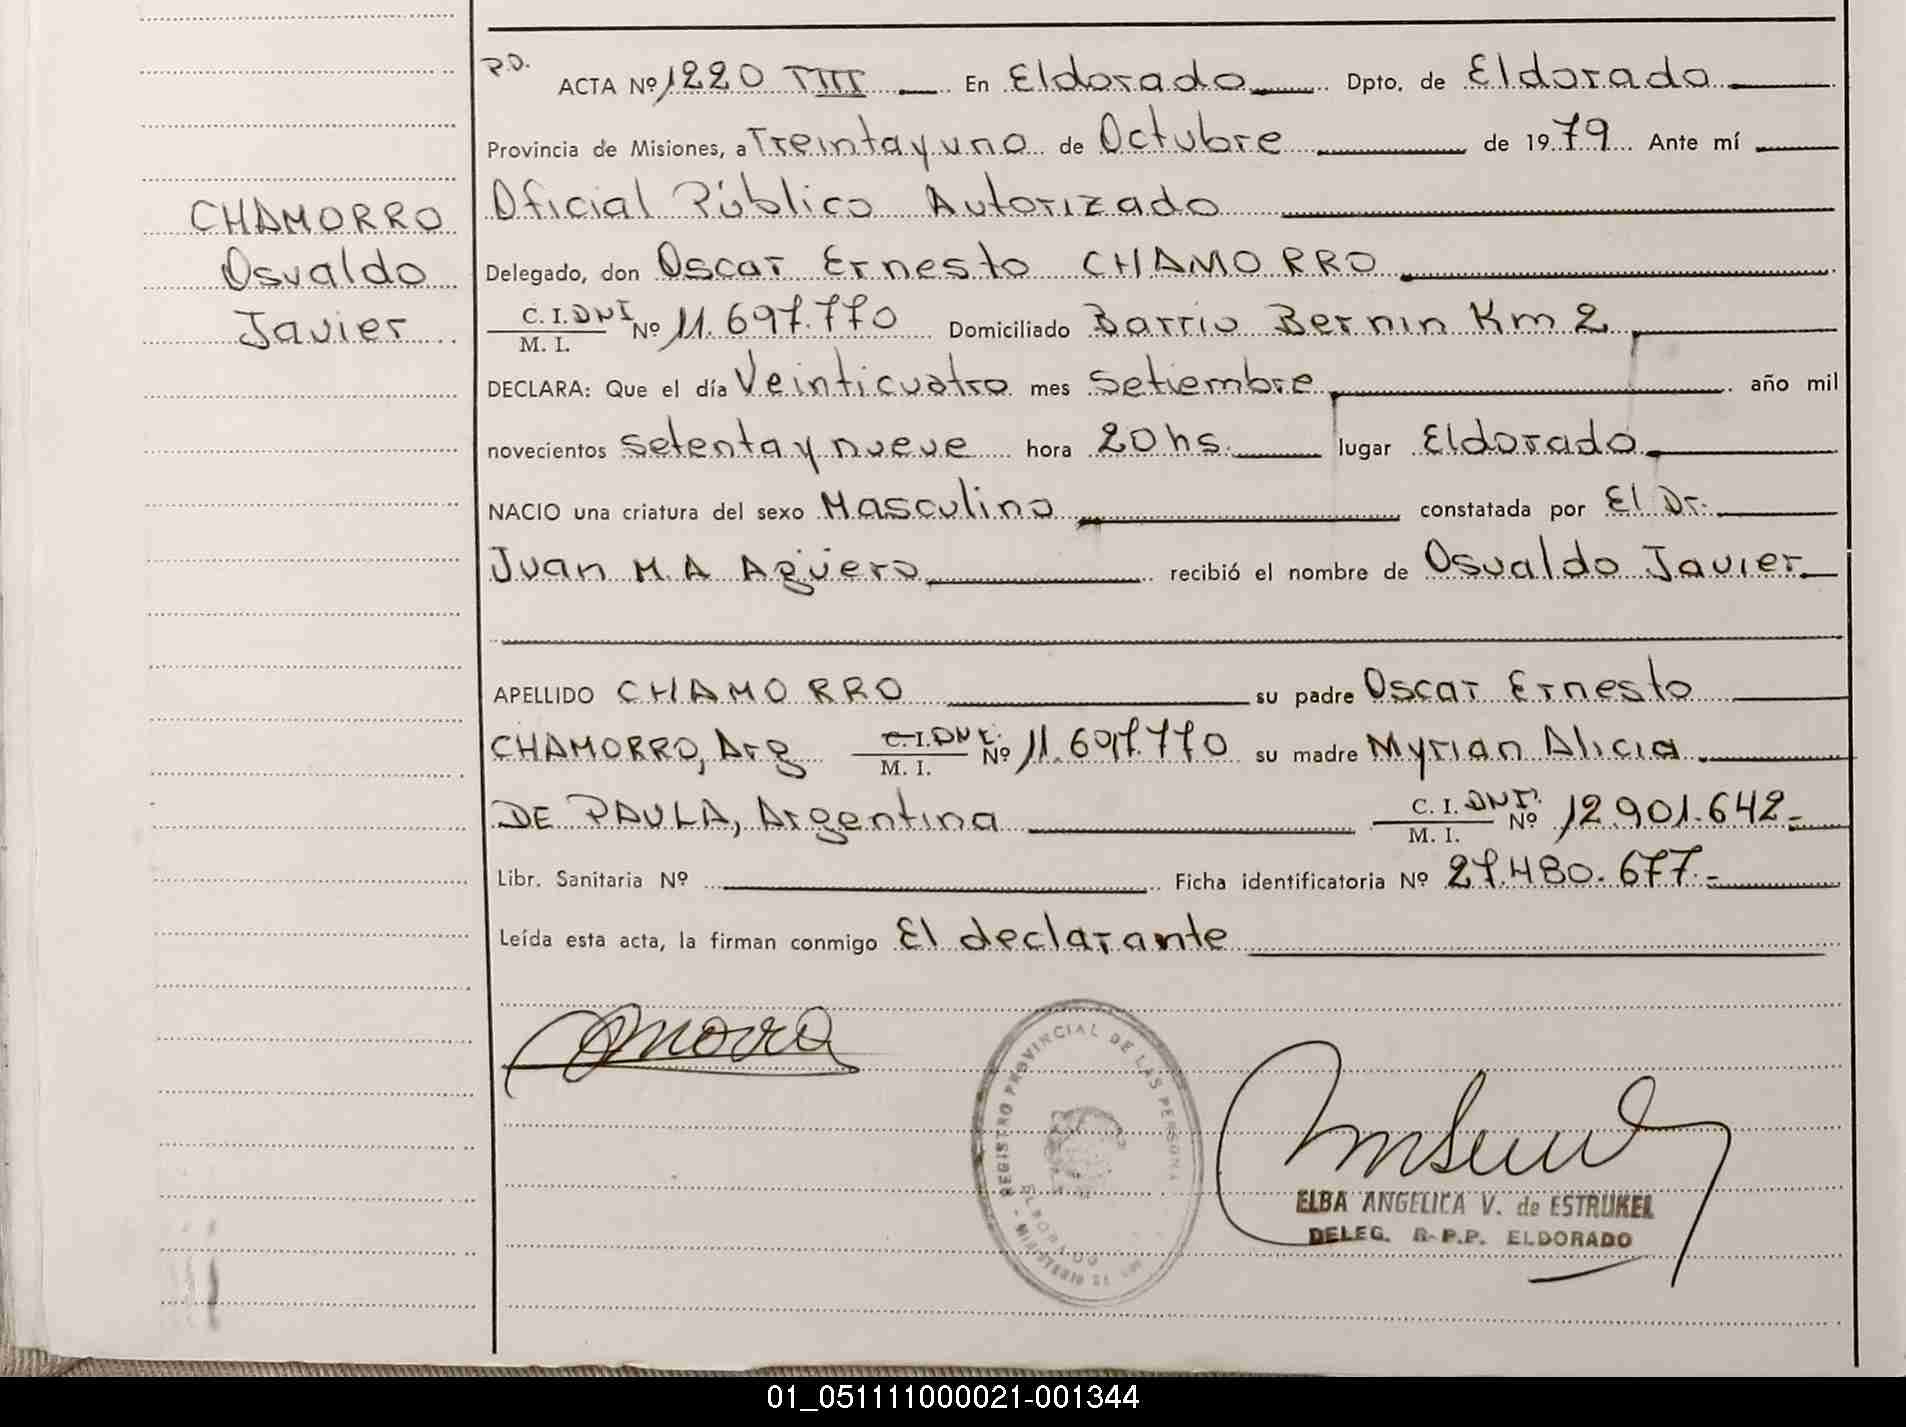 P.D. ACTA Nº 1220 TIII En Eldorado Dpto. de Eldorado
Provincia de Misiones, a Treinta y uno de Octubre de 1979 Ante mí
Oficial Público Autorizado
CHAMORRO
Osvaldo
Javier
Delegado, don Oscar Ernesto CHAMORRO
C. I. DNI M. I. Nº 11.697.770 Domiciliado Barrio Bernin Km 2
DECLARA: Que el día Veinticuatro mes Setiembre año mil
novecientos setenta y nueve hora 20 hs. lugar Eldorado
NACIO una criatura del sexo Masculino constatada por El Dr.
Juan M. A Agüero recibió el nombre de Osvaldo Javier
APELLIDO CHAMORRO su padre Oscar Ernesto
CHAMORRO, Arg C. I. DNI. M. I. Nº 11.697.770 su madre Myrian Alicia
DE PAULA, Argentina C. I. DNI. M. I. Nº 12.901.642.-
Libr. Sanitaria Nº Ficha identificatoria Nº 27.480.677.-
Leída esta acta, la firman conmigo El declarante
REGISTRO PROVINCIAL DE LAS PERSONA
ELDORADO
ELBA ANGELICA V. de ESTRUKEL
DELEG. R.P.P. ELDORADO
01_051111000021-001344